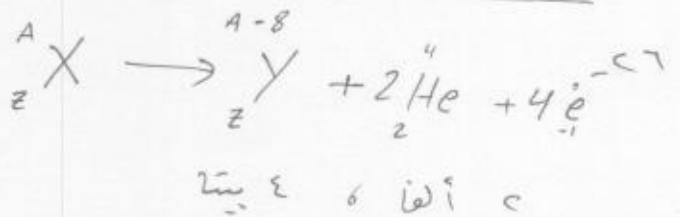 ᴬ_Z X → ᴬ⁻⁸_Z Y + 2 ⁴₂He + 4 ⁰₋₁e -٢٦
٢ ألفا ، ٤ بيتا